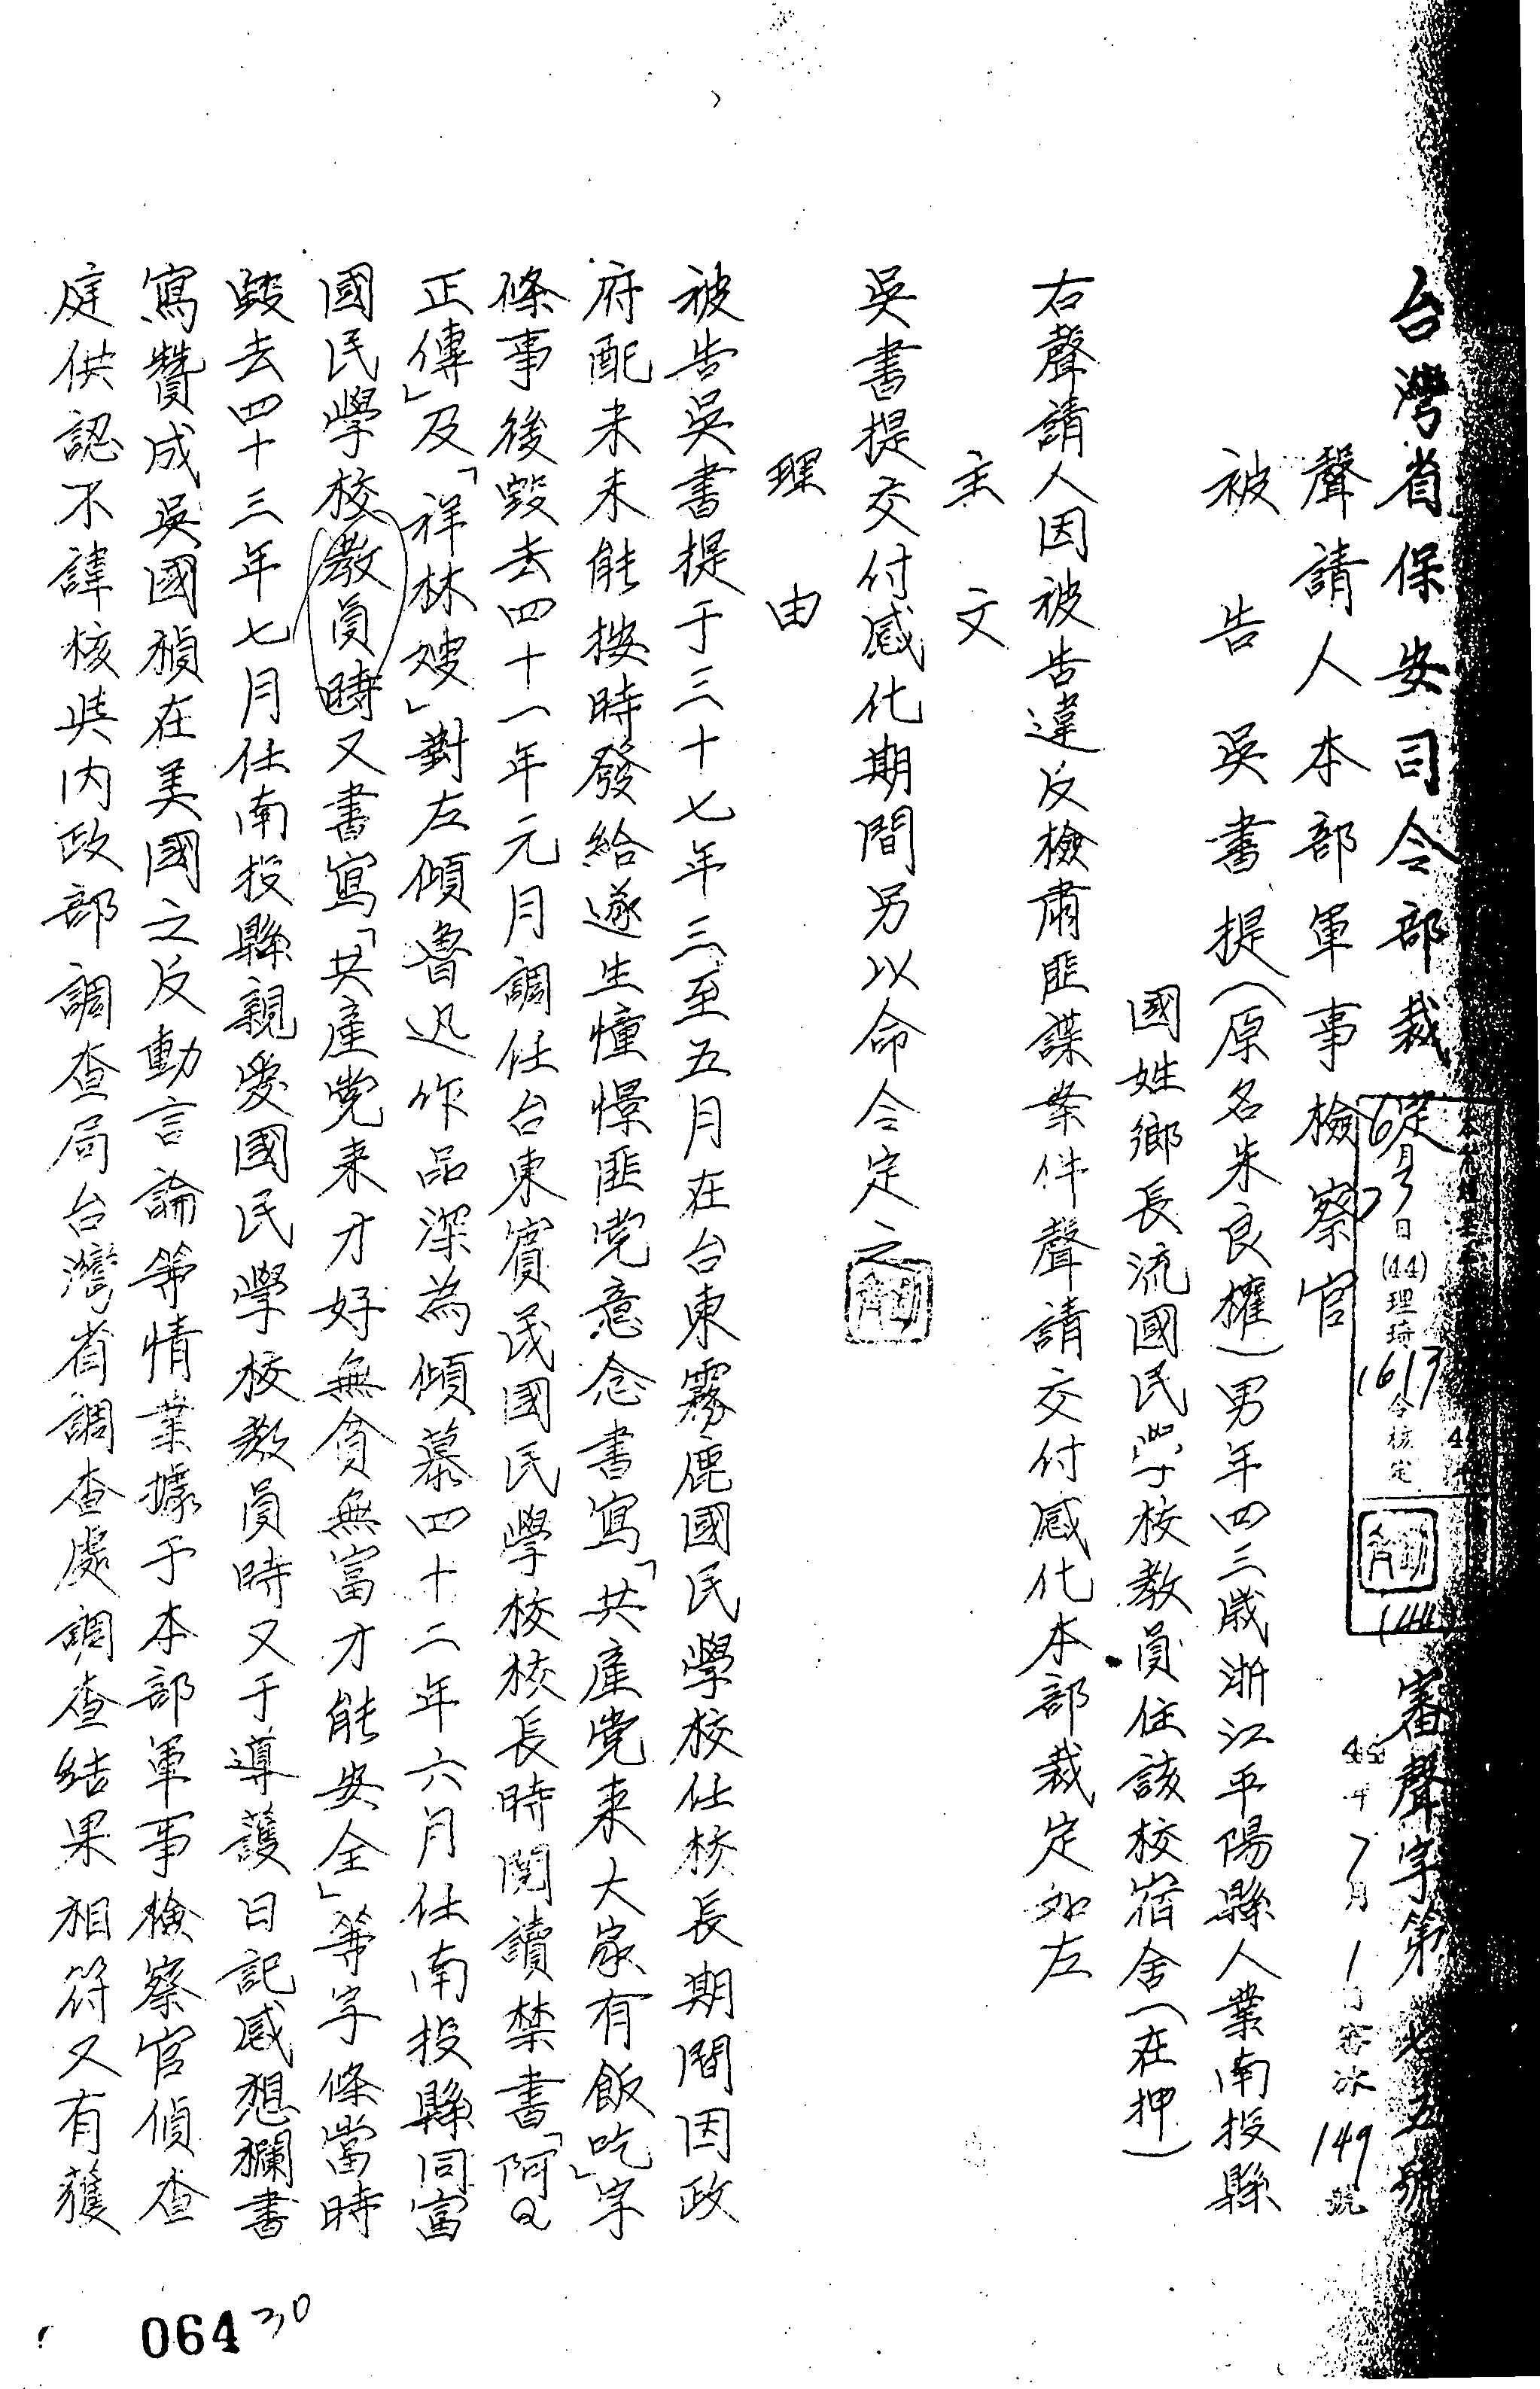 台灣省保安司令部裁定
審聲字第七五號
(44)理琦
1613
令核定
年7月1日
149號
聲請人本部軍事檢察官
被告吳書提(原名朱良權)男年四三歲浙江平陽縣人業南投縣
國姓鄉長流國民学校教員住該校宿舍(在押)
右聲請人因被告違反檢肅匪諜条件聲請交付感化本部裁定如左
主文
吳書提交付感化期間另以命令定之
理由
被告吳書提于三十七年三至五月在台東霧鹿國民學校任校長期間因政
府配米未能按時發給遂生憧憬匪党意念書寫「共產党来大家有飯吃」字
條事後毀去四十一年元月調任台東賓茂國民學校校長時閱讀禁書「阿Q
正傳」及「祥林嫂」對左傾魯迅作品深為傾慕四十二年六月任南投縣同富
國民學校教員時又書寫「共產党来才好無貧無富才能安全」等字條當時
毀去四十三年七月任南投縣親愛國民學校教員時又于導護日記感想欄書
寫贊成吳國楨在美國之反動言論等情業據于本部軍事檢察官偵查
庭供認不諱核与內政部調查局台灣省調查處調查結果相符又有獲
064
30